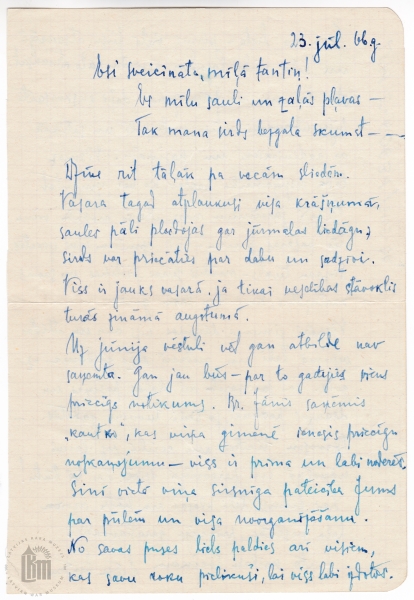 23. jūl. 66g.
Esi sveicināta, mīļā tantiņ!
Es mīlu sauli un zaļās pļavas —
Tak mana sirds bezgala skumst — —
Dzīve rit tālāk pa vecām sliedēm.
Vasara tagad atplaukusi visā krāšņumā,
saules pāļi plosdojas gar jūrmalas
sirds var priecāties par dabu un sadzīvi.
Viss ir jauks vasarā, ja tikai veselības stāvoklis
turās zināmā augstumā.
Uz jūnija vēstuli vēl gan atbilde nav
saņemta. Gan jau būs — par to gadījies viens
priecīgs notikums. Br. Jānis saņēmis
"kautko", kas viņa ģimenē ienesis priecīgu
noskaņojumu — viss ir prima un labi noderēs.
Šinī vietā viņa sirsnīga pateicība Jums
par pūlēm un visa noorganizēšanu.
No savas puses liels paldies arī visiem,
kas savu roku pielikuši, lai viss labi izdotos.